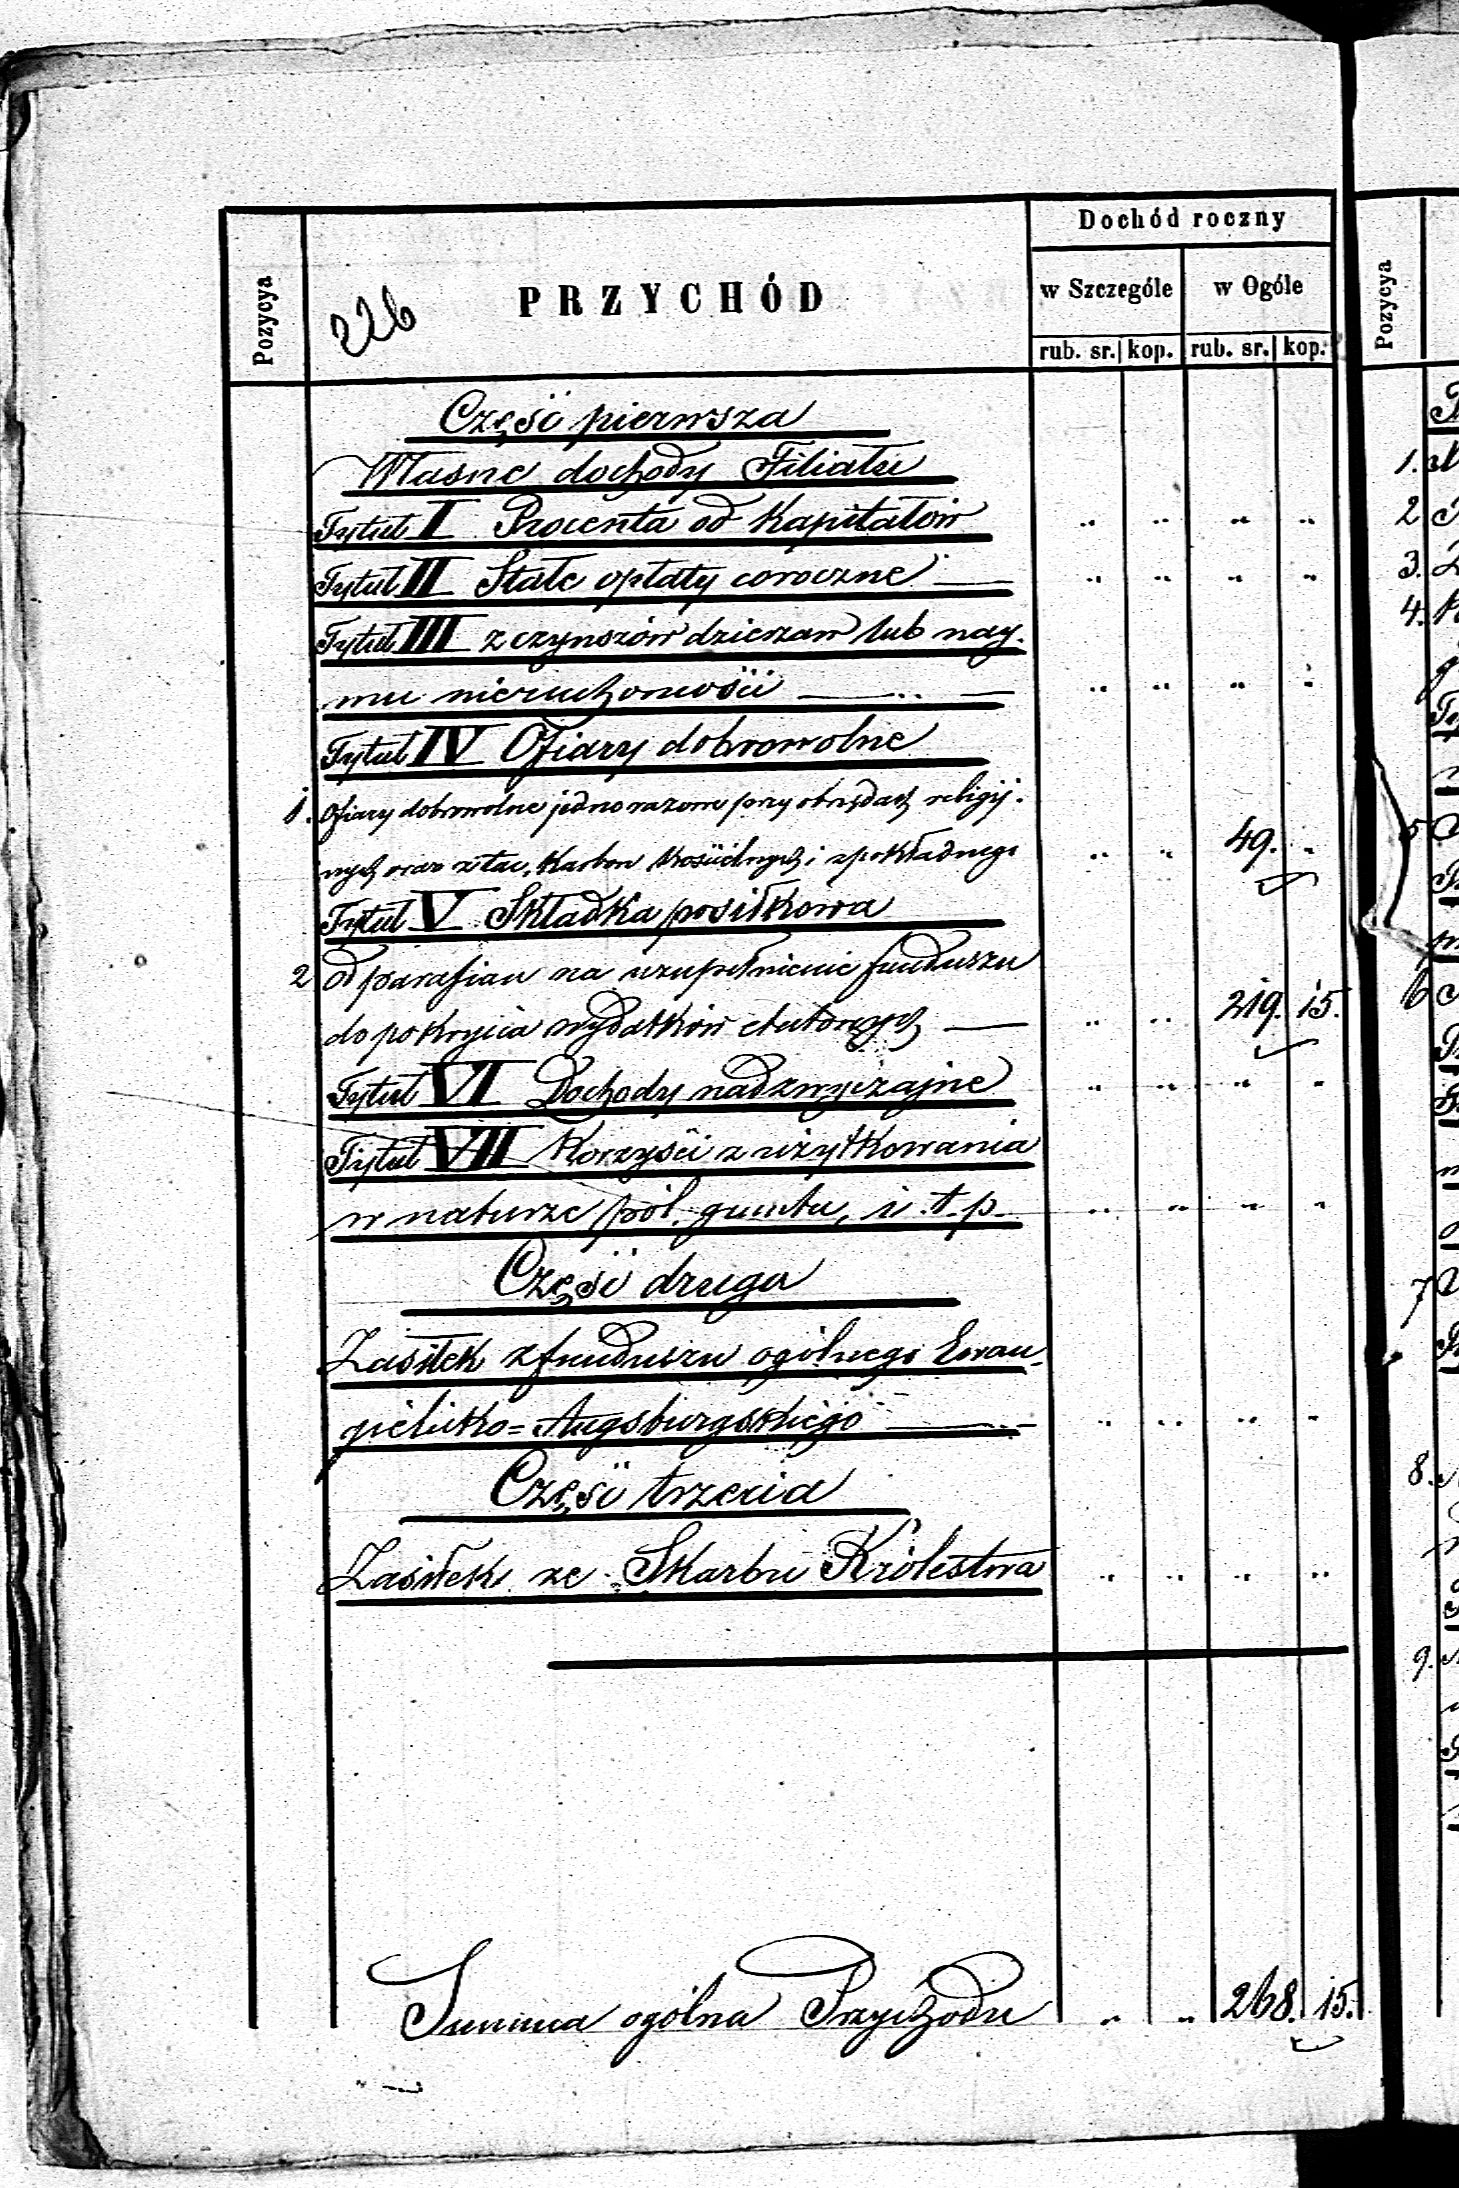 Dochód roczny
Pozycya
226
PRZYCHÓD
w Szczególe
w Ogóle
rub. sr. kop. rub. sr. kop.
Pozycya
Część pierwsza
Własne dochody Filiału
Tytuł I Procenta od kapitałów " " " "
Tytuł II Stałe opłaty coroczne — " " " "
Tytuł III z czynszów dzierżaw lub nay-
mu nieruchomości — " " " "
Tytuł IV Ofiary dobrowolne
1. Ofiary dobrowolne jednorazowe przy obrzędach religij-
nych oraz z tac, karbon kościelnych i z pokładnego " " 49. "
Tytuł V Składka posiłkowa
2 od parafian na uzupełnienie funduszu
do pokrycia wydatków etatowych — " " 219. 15.
Tytuł VI Dochody nadzwyczajne " " " "
Tytuł VII Korzyści z użytkowania
w naturze pól, gruntu, i t. p. " " " "
Część druga
Zasiłek z funduszu ogólnego Ewan-
gielicko=Augsburgskiego — " " " "
Część trzecia
Zasiłek ze Skarbu Królestwa " " " "
Summa ogólna Przychodu " " 268. 15.
1.
2
3.
4.
5
6
7
8.
9.